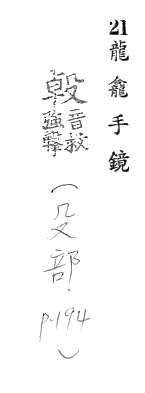 21 龍龕手鏡
音教
強擊
（殳部．p.194）